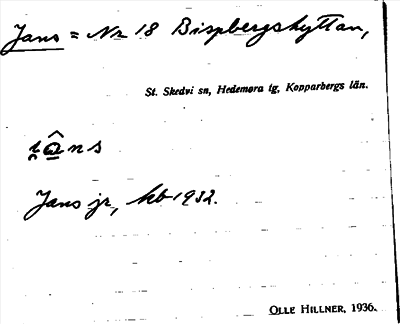 Jans = Nr 18 Bispbergshyttan,
St. Skedvi sn, Hedemora tg, Kopparbergs län.
Jans jr, kb 1932.
OLLE HILLNER, 1936.